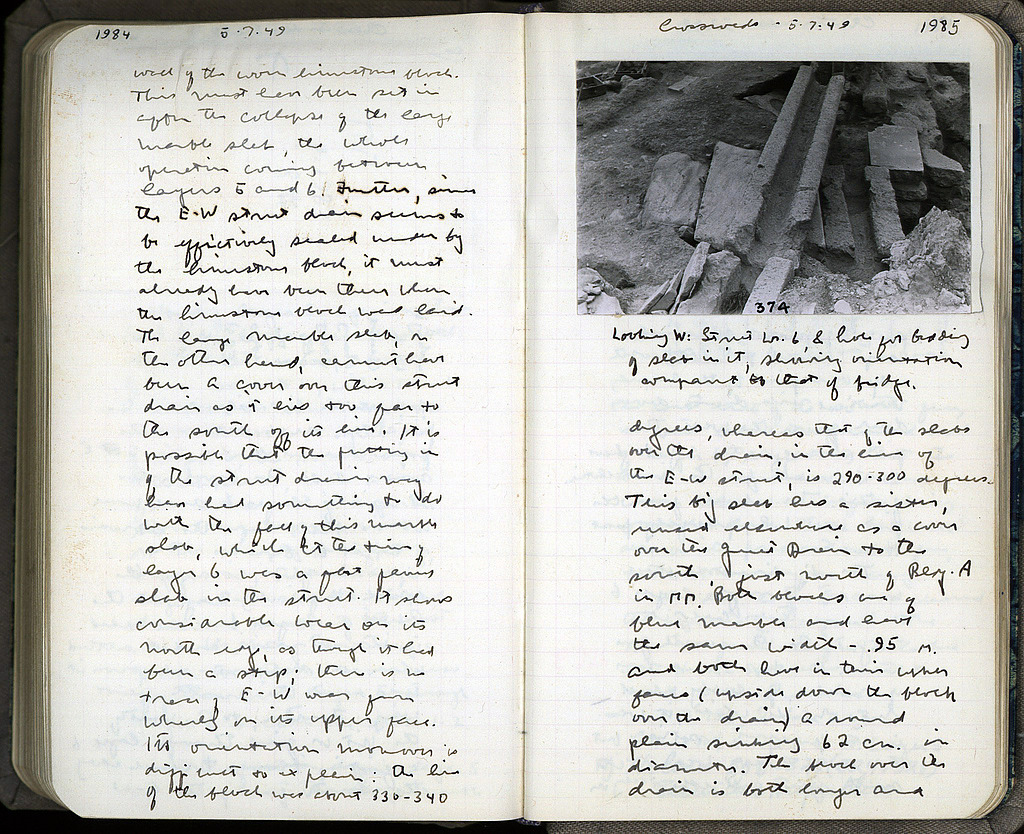 1984 5·7·49
west of the worn limestone block.
This must have been set in
after the collapse of the large
marble slab, the whole
operation coming between
layers 5 and 6. Further, since
the E-W street drain seems to
be effectively sealed under by
the limestone block, it must
already have been there when
the limestone block was laid.
The large marble slab, on
the other hand, cannot have
been a cover over this street
drain as it lies too far to
the south of its line. It is
possible that the putting in
of the street drain may
have had something to do
with the fall of this marble
slab, which at the time of
layer 6 was a
slab in the street. It shows
considerable wear on its
north edge, as though it had
been a step; there is no
trace of E-W wear from
wheels on its upper face.
Its orientation moreover is
difficult to explain: the line
of the block was about 330-340
Crossroads - 5·7·49 1985
374
Looking W: Street Lr. 6, & hole for bedding
of slab in it, showing orientation
compared to that of bridge.
degrees, whereas that of the slabs
over the drain, in the line of
the E-W street, is 290-300 degrees.
This big slab has a sister,
reused elsewhere as a cover
over the Great Drain to the
south, just north of Bldg. A
in MM. Both blocks are of
blue marble and have
the same width - .95 M.
and both have in their upper
faces (upside down the block
over the drain) a round
plain sinking 62 cm. in
diameter. The block over the
drain is both longer and